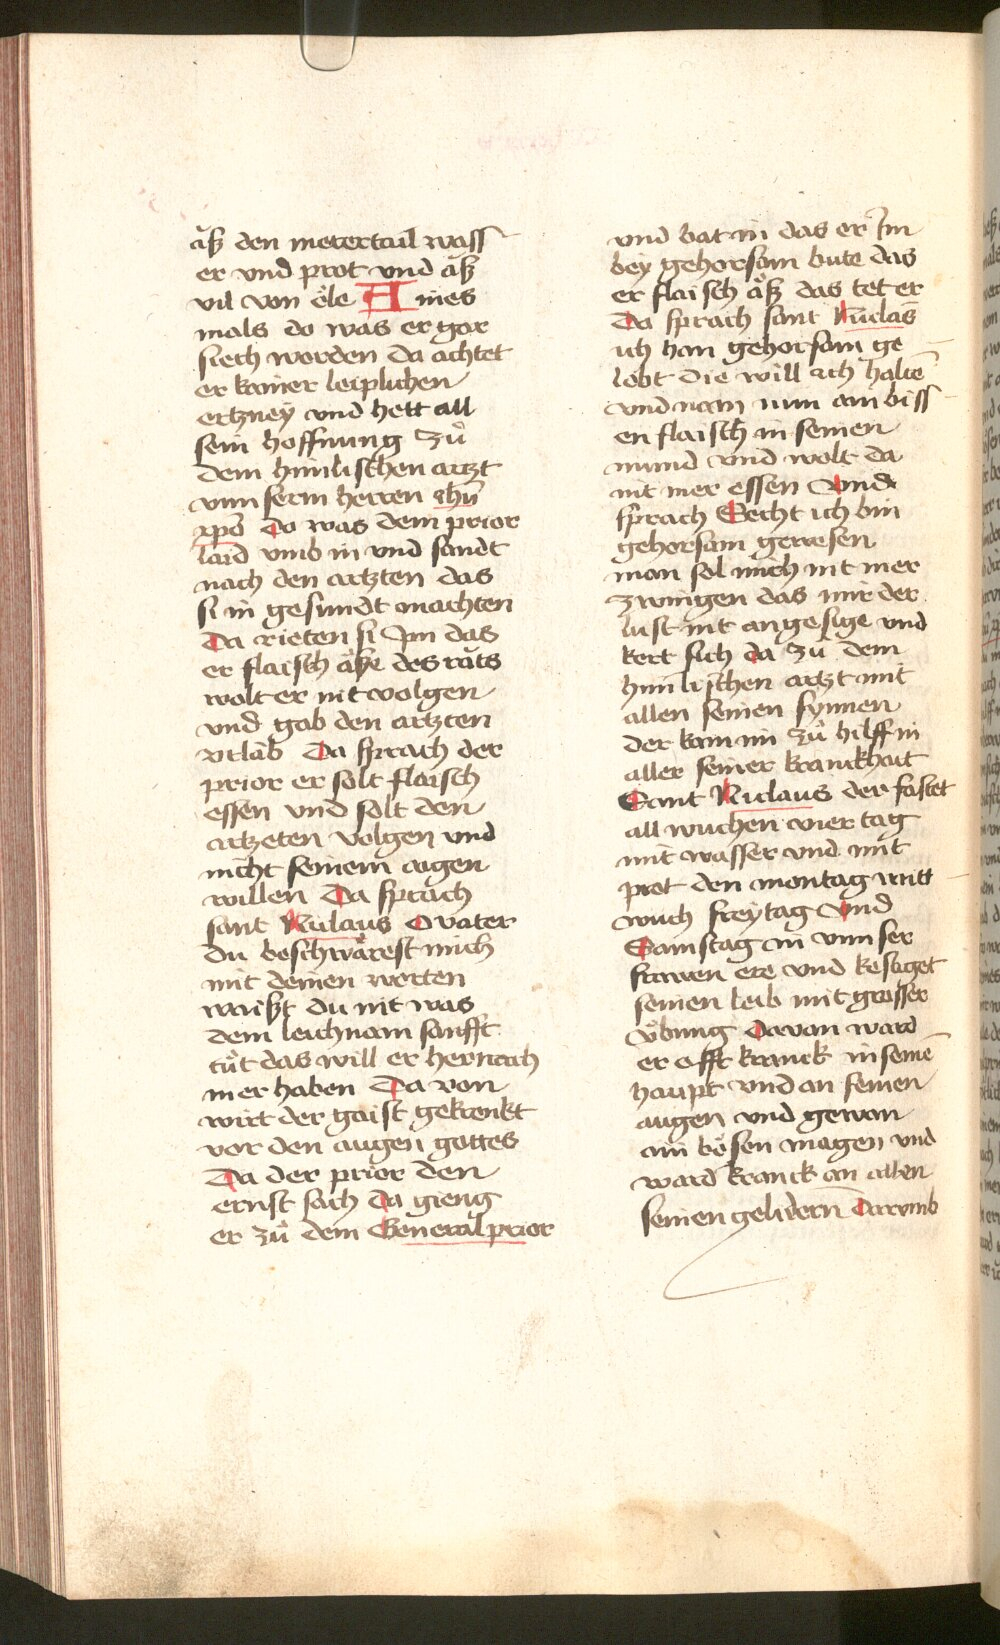 aͤß den merertail wass
er vnd prot vnd aͤß
vil von oͤle Aines
mals do was er gar
siech worden da achtet
er kainer leiplichen
ertzney vnd hett all
sein hoffnung zuͦ
dem himlischen artzt
vnnserm herren ihū
xp̄o Do was dem prior
laid vmb in vnd sandt
nach den artzten das
si in gesundt machten
Da rieten si Im das
er flaisch aͤße des rauts
wolt er nit volgen
vnd gab den artzten
vrlāb Da sprach der
prior er solt flaisch
essen vnd solt den
artzeten volgen vnd
nicht seinem aigen
willen Da sprach
sant Niclaus O vater
du beschwaͤrest mich
mit deinen worten
waißt du nit was
dem leichnam sanfft
tuͦt das will er hernach
mer haben Da von
wirt der gaist gekrenkt
vor den augen gottes
Da der prior den
ernst sach da gieng
er zuͦ dem General prior
vnd bat in das er Im
bey gehorsam bute das
er flaisch aͤß das tet er
Da sprach sant Niclas
ich han gehorsam ge
lobt die will ich haltē
vnd nam nun ain biss
en flaisch in seinen
mund vnd wolt da
nit mer essen Vnd
sprach Secht ich bin
gehorsam gewesen
man sol mich nit mer
zwingen das mir der
lust nit angesige vnd
kert sich da zu dem
himlischen artzt mit
allen seinen synnen
der kam im zuͦ hilff in
aller seiner kranckhait
Sant Niclaus der fastet
all wuchen vier tag
mit wasser vnd mit
prot den montag mitt
wuch freytag Vnd
Samstag in vnnser
frawen ere vnd kestiget
seinen leib mit grosser
vͤbung Davon ward
er offt kranck in seinē
haupt vnd an seinen
augen vnd gewan
ain boͤsen magen vnd
ward kranck an allen
seinen gelidern Darvmb